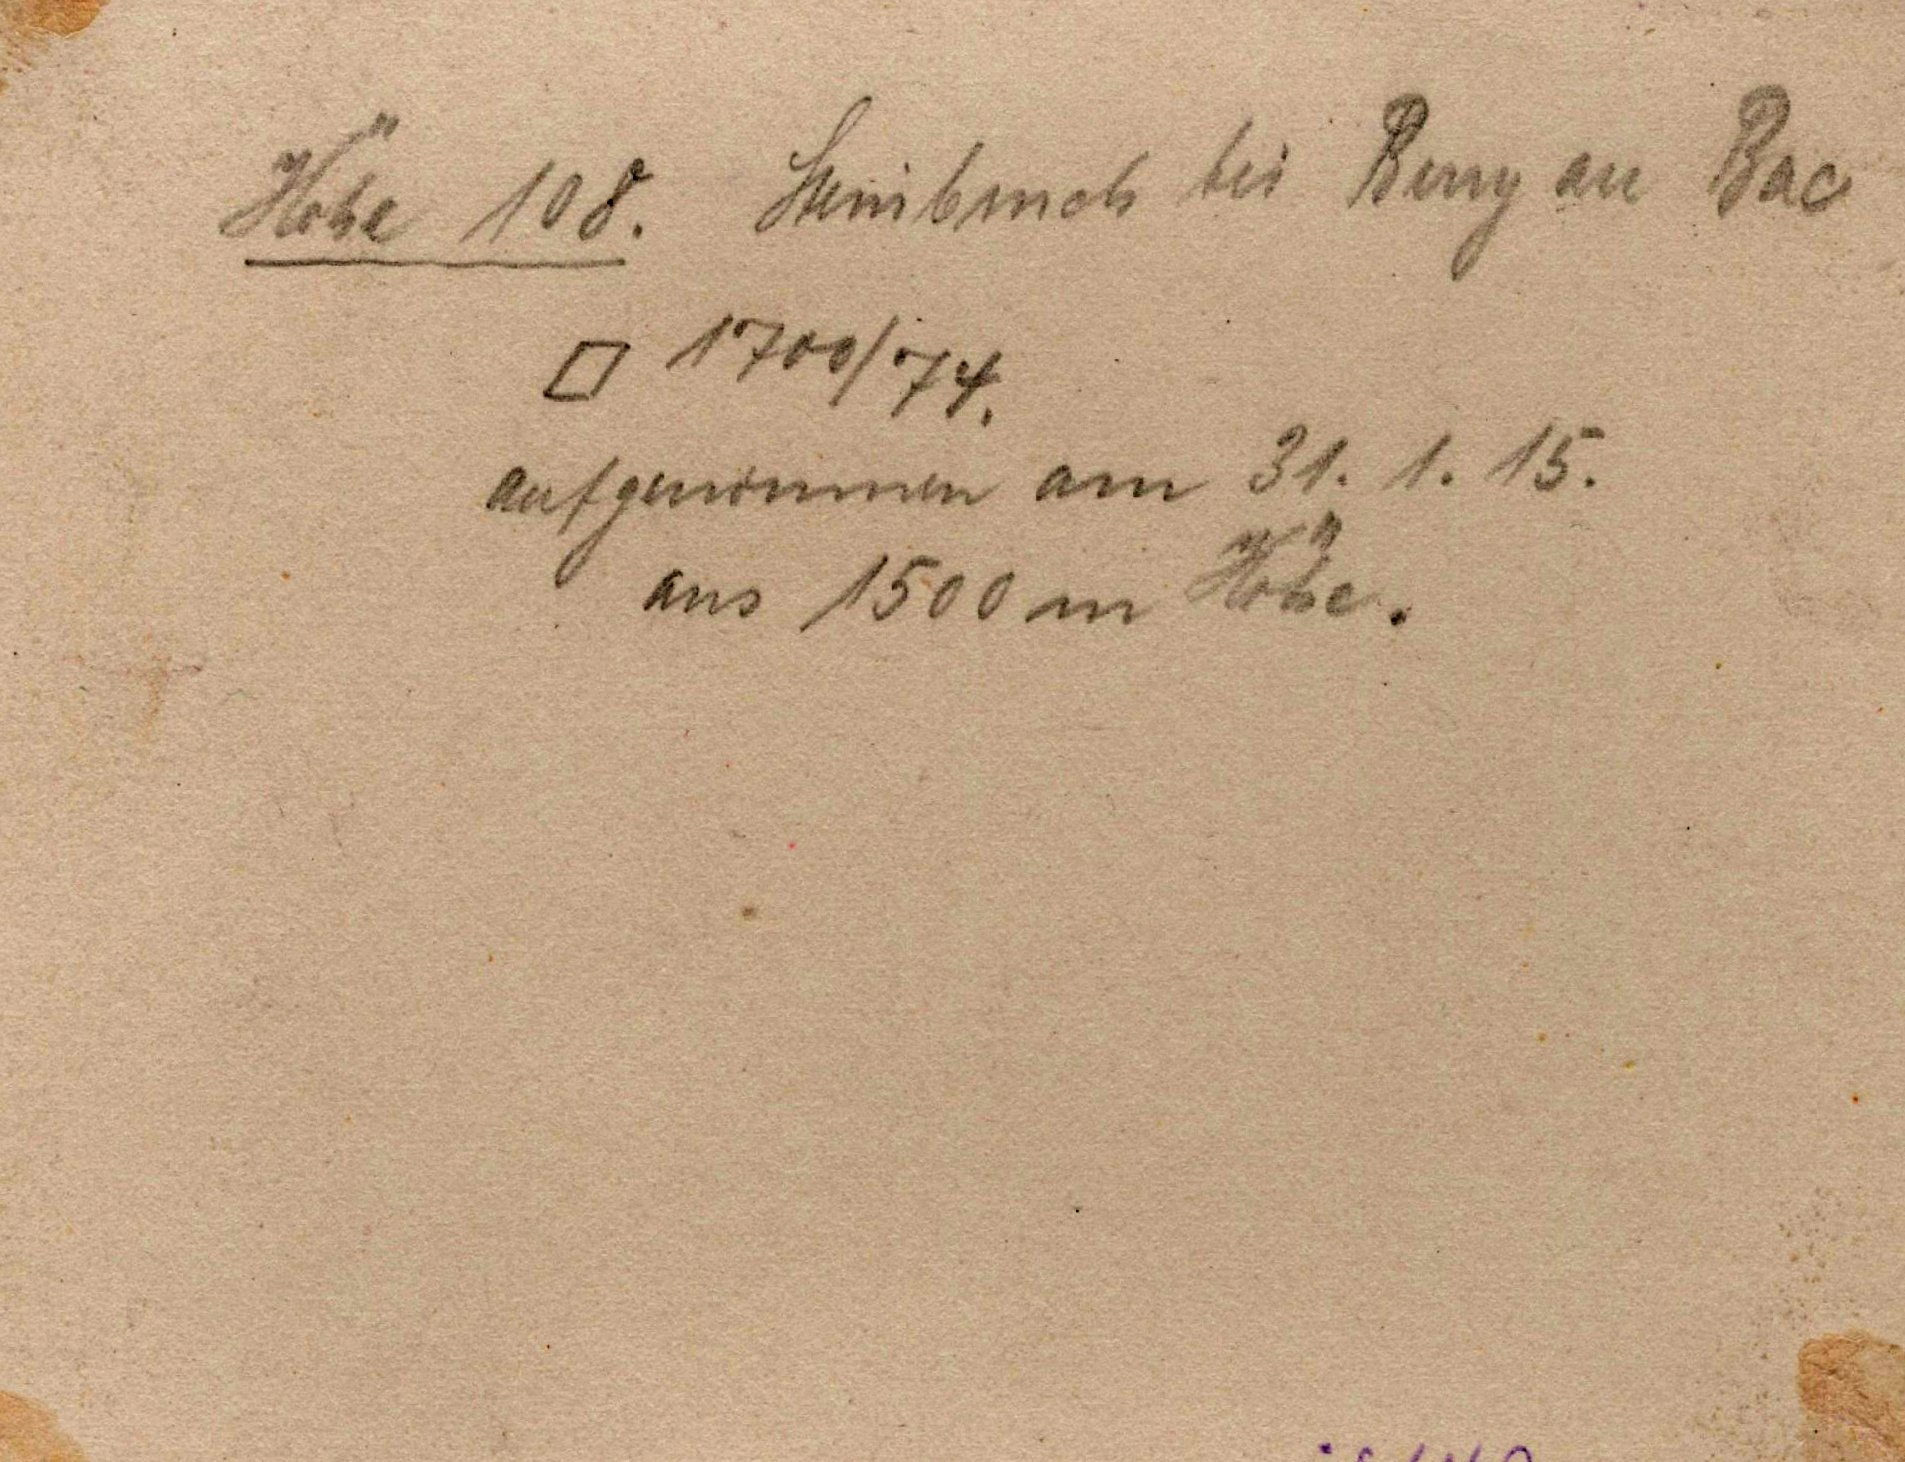 Höhe 108. Steinbruch bei Berry au Bac
□ 1700/74.
aufgenommen am 31. 1. 15.
aus 1500 m Höhe.